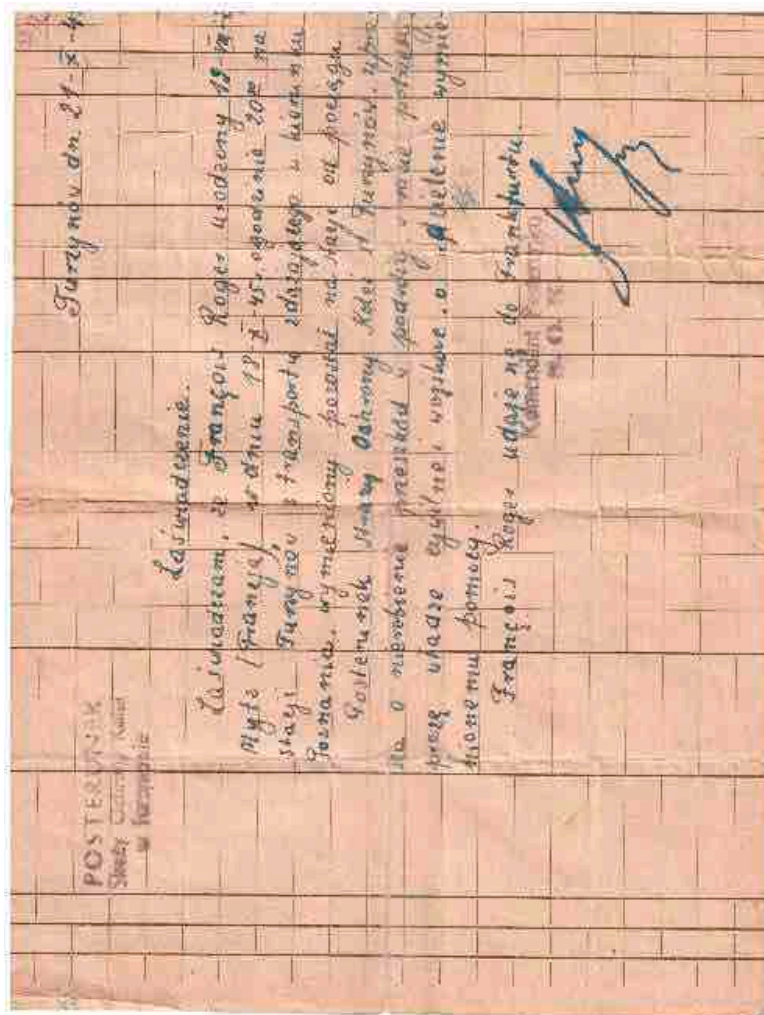 POSTERUNEK
Straży Ochrony Kolei
w Tunynowie
Tunynów dn 21-X-4
Zaświadczenie.
Zaświadczam, że François Roger urodzony 18-VIII-
Mytz (Francja), w dniu 18-X-45r. o godzinie 20⁰⁰ na
stacji Tunynów z transportu zdążającego w kierunku
Poznania, wymieniony pozostał na stacji od pociągu
Posterunek Straży Ochrony Kolei w Tunynów. upra
sza o nierobienie przeszkód w podróży, w razie potrzeby
proszę władze cywilne i wojskowe o udzielenie wymie-
nionemu pomocy.
François Roger udaje się do Frankfurtu.
Komendant Posterunku
S.O.K.